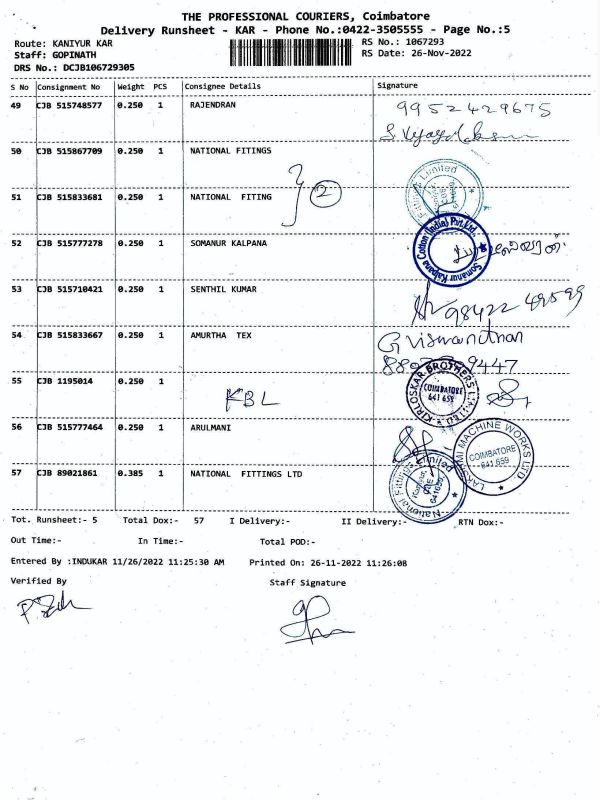 THE PROFESSIONAL COURIERS, Coimbatore
Delivery Runsheet - KAR - Phone No.:0422-3505555 - Page No.:5
Route: KANIYUR KAR
RS No.: 1067293
Staff: GOPINATH
RS Date: 26-Nov-2022
DRS No.: DCJB106729305
S No Consignment No Weight PCS Consignee Details Signature
49 CJB 515748577 0.250 1 RAJENDRAN 9952429675
50 CJB 515867709 0.250 1 NATIONAL FITTINGS
51 CJB 515833681 0.250 1 NATIONAL FITTING 2
Fittings Limited
52 CJB 515777278 0.250 1 SOMANUR KALPANA
Somanur Kalpana Cotton (India) Pvt.Ltd.
53 CJB 515710421 0.250 1 SENTHIL KUMAR
98422 49599
54 CJB 515833667 0.250 1 AMURTHA TEX
G Viswanathan
9447
55 CJB 1195014 0.250 1 KBL
KIRLOSKAR BROTHERS LIMITED
COIMBATORE
641 659
56 CJB 515777464 0.250 1 ARULMANI
LAKSHMI MACHINE WORKS LTD.
COIMBATORE
641 659
57 CJB 89021861 0.385 1 NATIONAL FITTINGS LTD
National Fittings Limited
Kaniyur,
CBE
641659
Tot. Runsheet:- 5 Total Dox:- 57 I Delivery:- II Delivery:- RTN Dox:-
Out Time:- In Time:- Total POD:-
Entered By :INDUKAR 11/26/2022 11:25:30 AM Printed On: 26-11-2022 11:26:08
Verified By Staff Signature